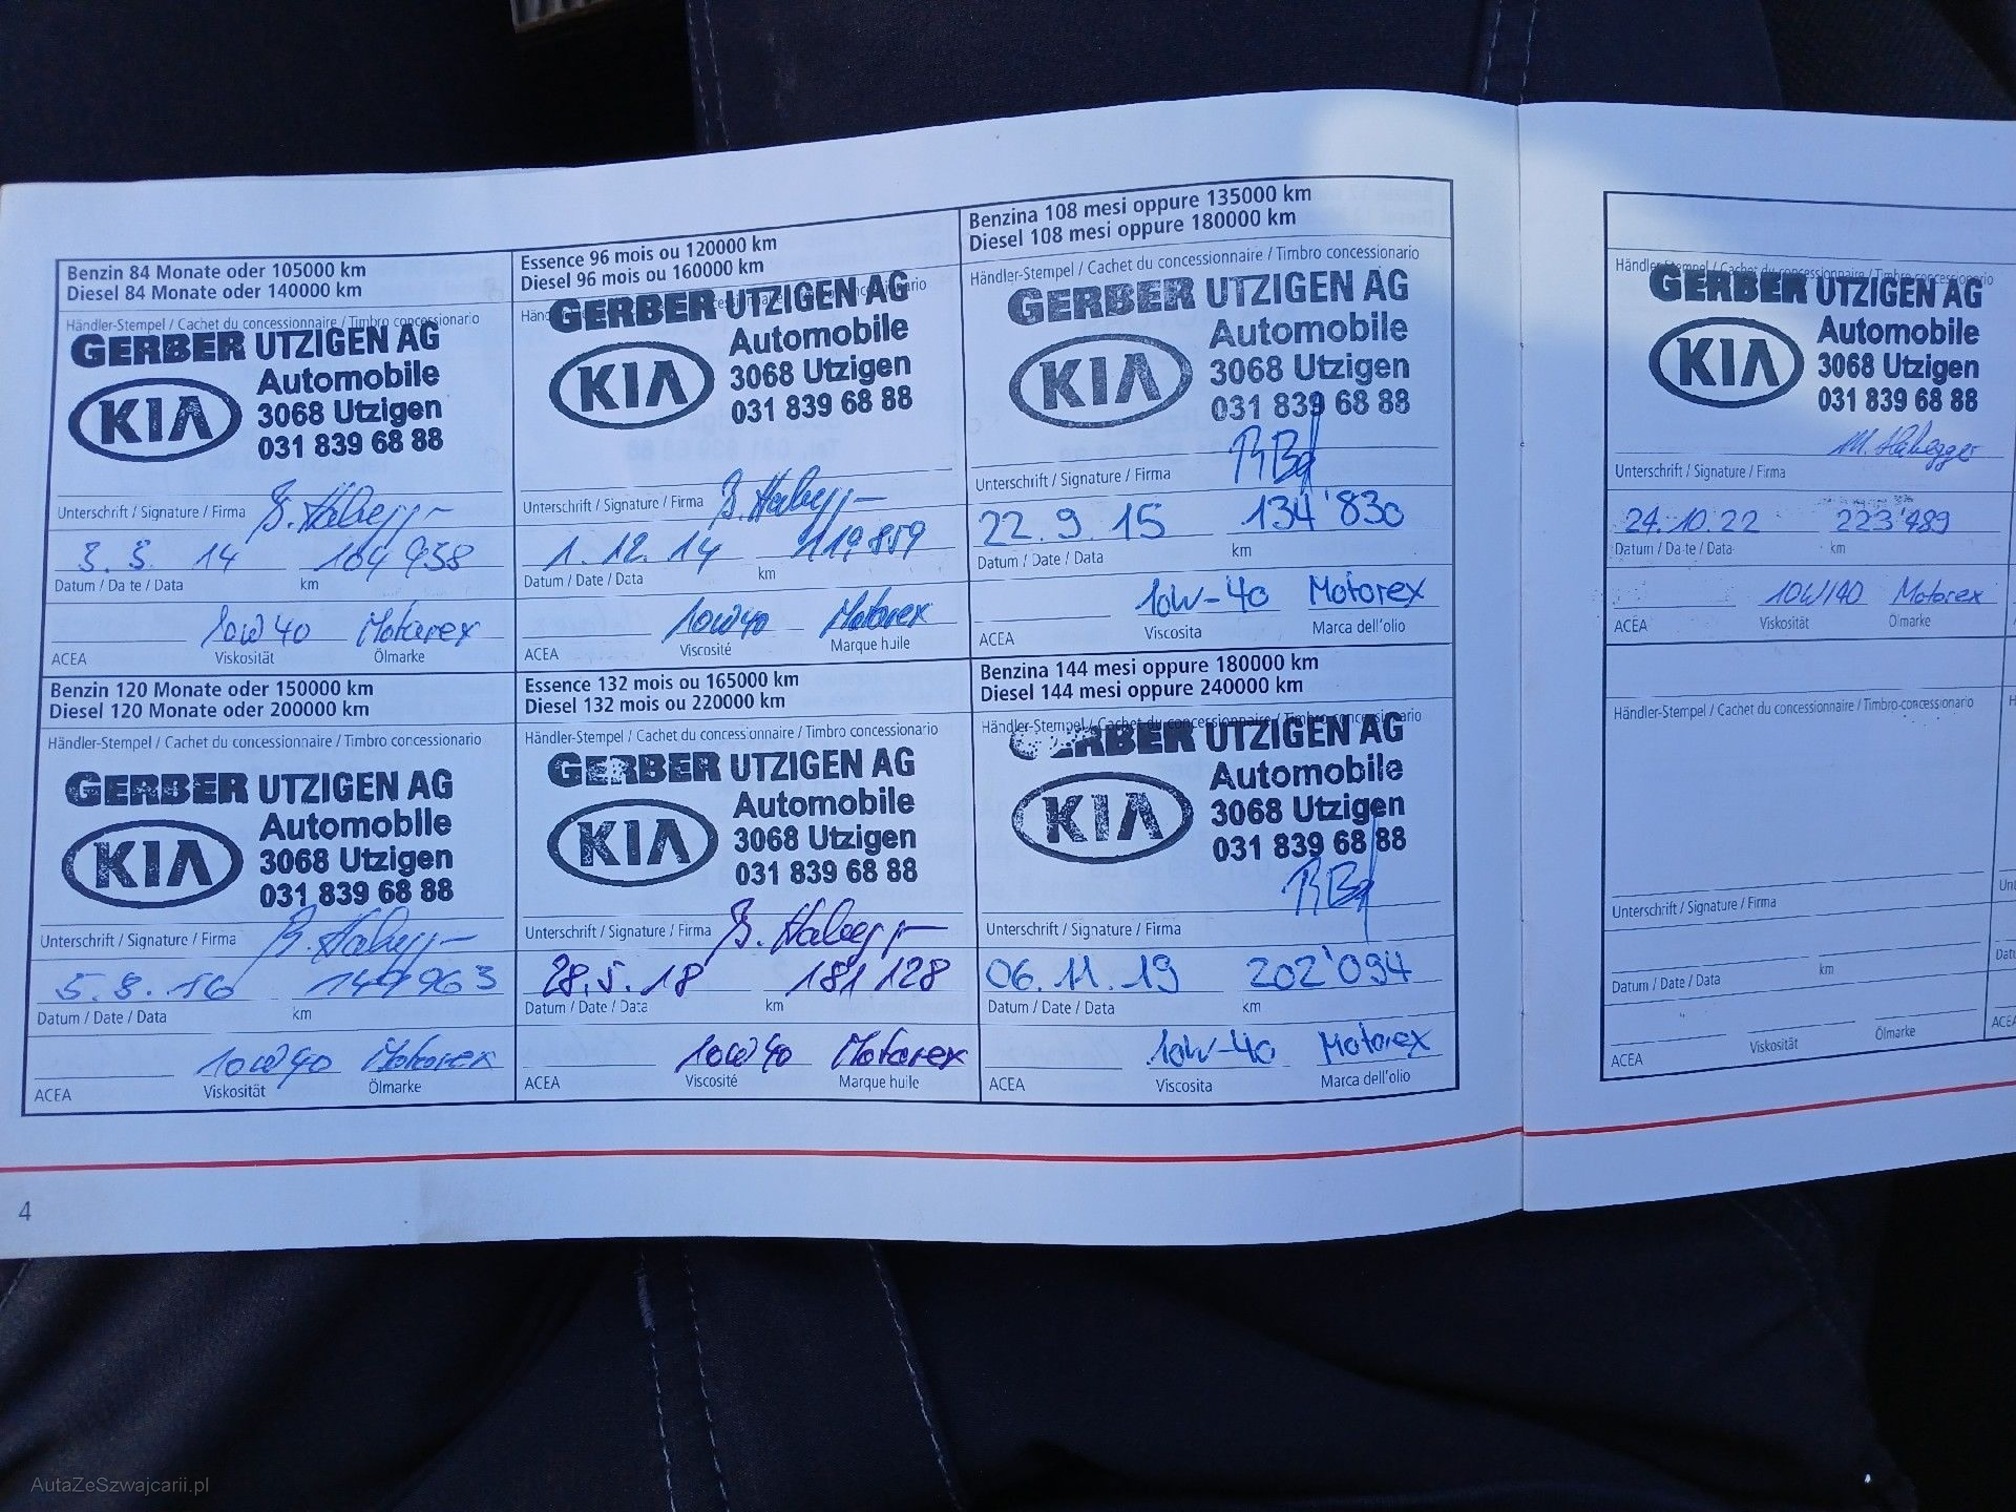 Benzin 84 Monate oder 105000 km
Diesel 84 Monate oder 140000 km
Händler-Stempel / Cachet du concessionnaire / Timbro concessionario
GERBER UTZIGEN AG
KIA
Automobile
3068 Utzigen
031 839 68 88
Unterschrift / Signature / Firma
14 104 958
Datum / Date / Data km
10W40 Motorex
ACEA Viskosität Ölmarke
Essence 96 mois ou 120000 km
Diesel 96 mois ou 160000 km
GERBER UTZIGEN AG
KIA
Automobile
3068 Utzigen
031 839 68 88
Unterschrift / Signature / Firma
1. 12. 14
Datum / Date / Data km
10W40 Motorex
ACEA Viscosité Marque huile
Benzina 108 mesi oppure 135000 km
Diesel 108 mesi oppure 180000 km
Händler-Stempel / Cachet du concessionnaire / Timbro concessionario
GERBER UTZIGEN AG
KIA
Automobile
3068 Utzigen
031 839 68 88
Unterschrift / Signature / Firma
22. 9. 15 134'830
Datum / Date / Data km
10W-40 Motorex
ACEA Viscosita Marca dell'olio
Benzin 120 Monate oder 150000 km
Diesel 120 Monate oder 200000 km
Händler-Stempel / Cachet du concessionnaire / Timbro concessionario
GERBER UTZIGEN AG
KIA
Automobile
3068 Utzigen
031 839 68 88
Unterschrift / Signature / Firma
16 149 963
Datum / Date / Data km
10W40 Motorex
ACEA Viskosität Ölmarke
Essence 132 mois ou 165000 km
Diesel 132 mois ou 220000 km
Händler-Stempel / Cachet du concessionnaire / Timbro concessionario
GERBER UTZIGEN AG
KIA
Automobile
3068 Utzigen
031 839 68 88
Unterschrift / Signature / Firma
28.5.18 181 128
Datum / Date / Data km
10W40 Motorex
ACEA Viscosité Marque huile
Benzina 144 mesi oppure 180000 km
Diesel 144 mesi oppure 240000 km
Händler-Stempel / Cachet du concessionnaire / Timbro concessionario
GERBER UTZIGEN AG
KIA
Automobile
3068 Utzigen
031 839 68 88
Unterschrift / Signature / Firma
06. 11. 19 202'094
Datum / Date / Data km
10W-40 Motorex
ACEA Viscosita Marca dell'olio
4
Händler-Stempel / Cachet du concessionnaire / Timbro concessionario
GERBER UTZIGEN AG
KIA
Automobile
3068 Utzigen
031 839 68 88
Unterschrift / Signature / Firma
24.10.22 223'489
Datum / Date / Data km
10W/40 Motorex
ACEA Viskosität Ölmarke
Händler-Stempel / Cachet du concessionnaire / Timbro concessionario
Unterschrift / Signature / Firma
Datum / Date / Data km
ACEA Viskosität Ölmarke
AutaZeSzwajcarii.pl